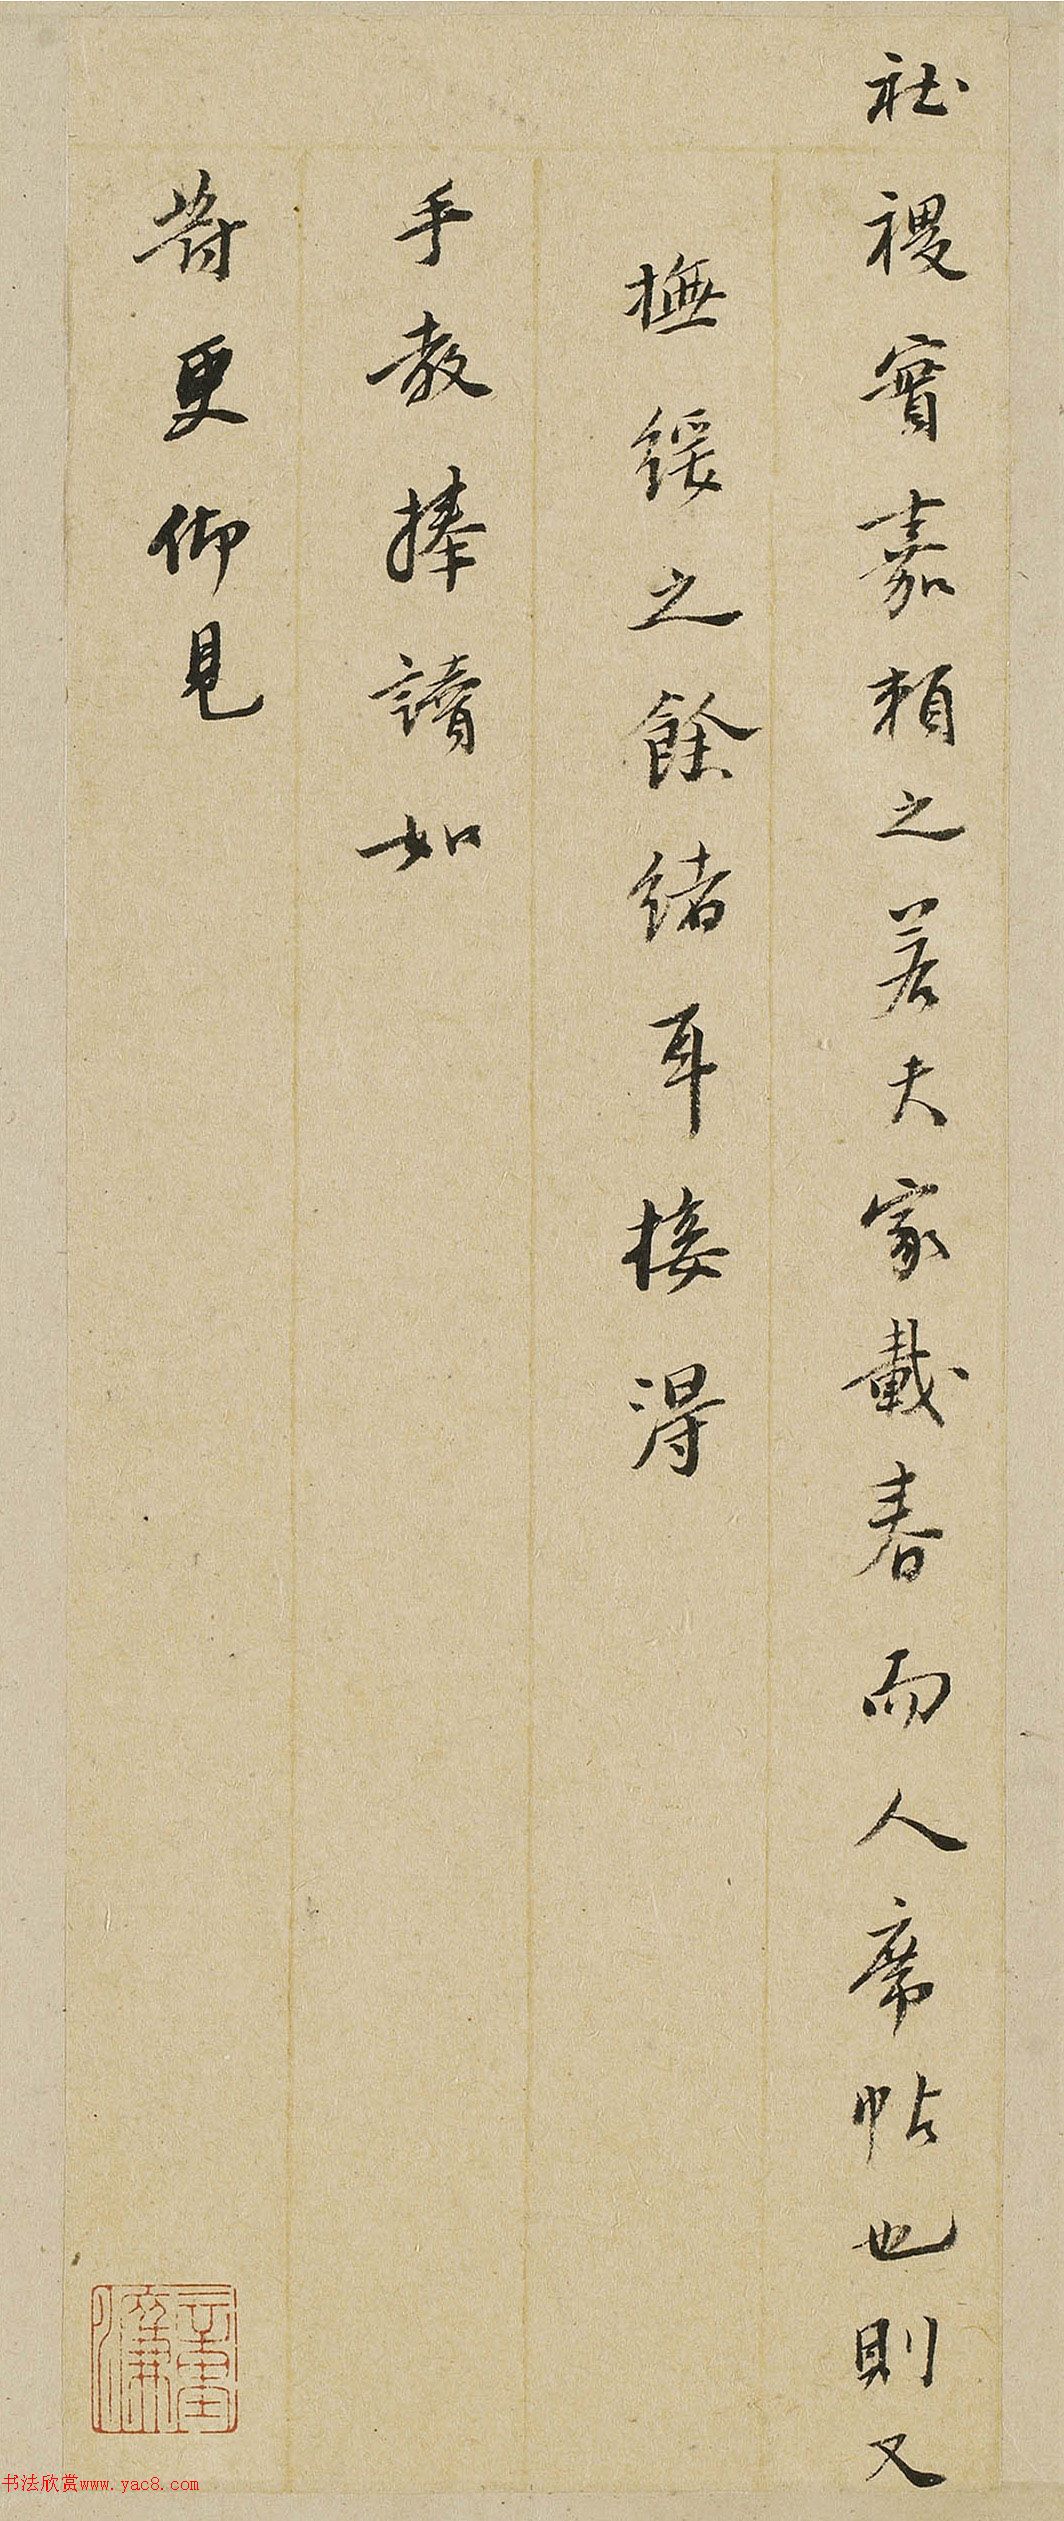 社稷實嘉賴之若夫家載春而人席帖也則又
撫綏之餘緒耳接得
手教捧讀如
昔更仰見
书法欣赏www.yac8.com